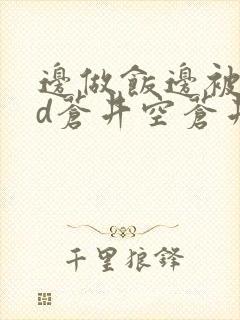 邊做飯邊被
d蒼井空蒼井
千里狼鋒